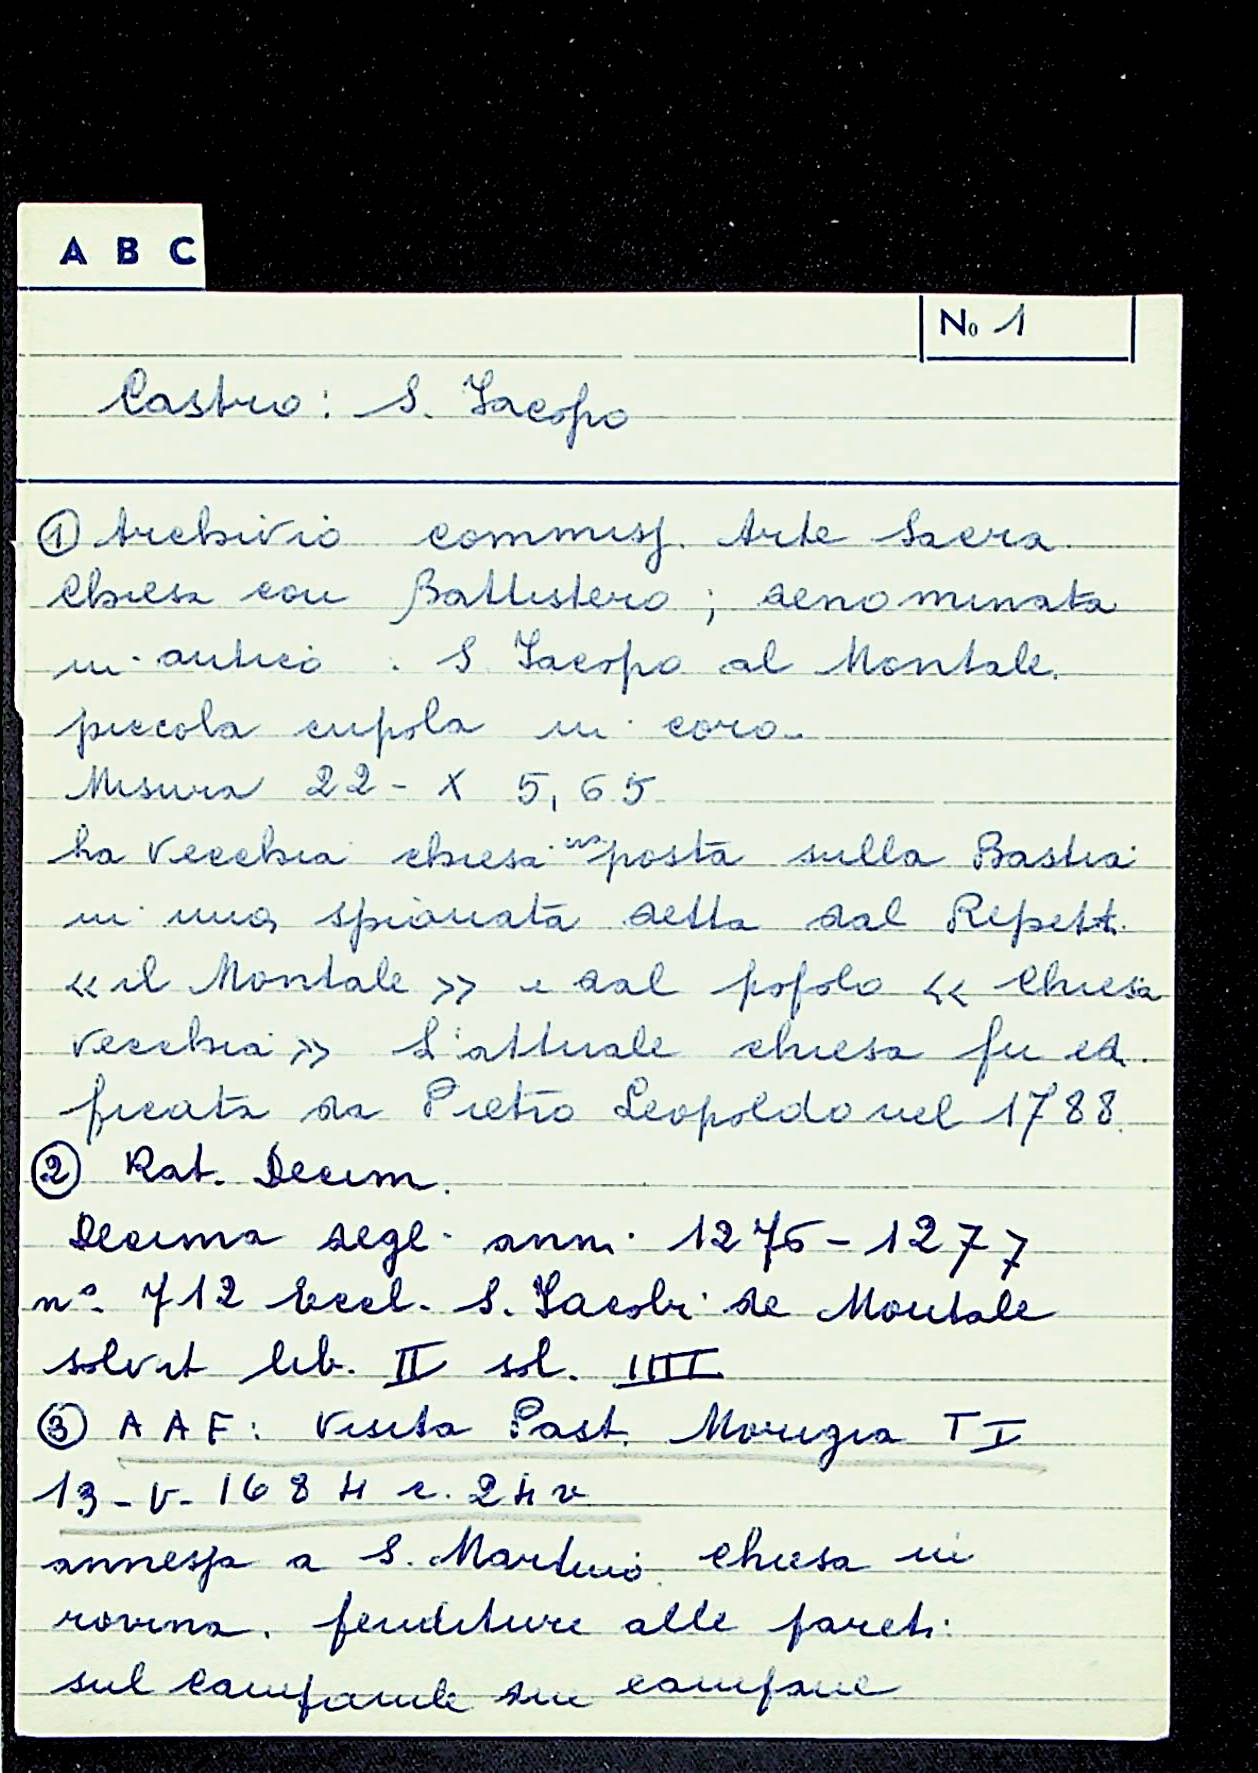 A B C
No 1
Castro: S. Jacopo
① Archivio commiss. Arte Sacra
Chiesa con Battistero; denominata
in antico . S Jacopo al Montale.
piccola cupola in coro.
Misura 22 - x 5,65
La vecchia chiesa posta sulla Bastia
in una spianata detta dal Repett.
«il Montale» e dal popolo «Chiesa
vecchia» L'attuale chiesa fu edi
ficata da Pietro Leopoldo nel 1788.
② Rat. Decim.
Decima degl. anni. 1276-1277
n°. 712 Eccl. S. Jacobi de Montale
solvit lib. II sol. IIII
③ A A F: Visita Past. Morigia T I
13-V-1684 c. 24 v
annessa a S. Martino. Chiesa in
rovina. fenditure alle pareti:
sul campanile due campane